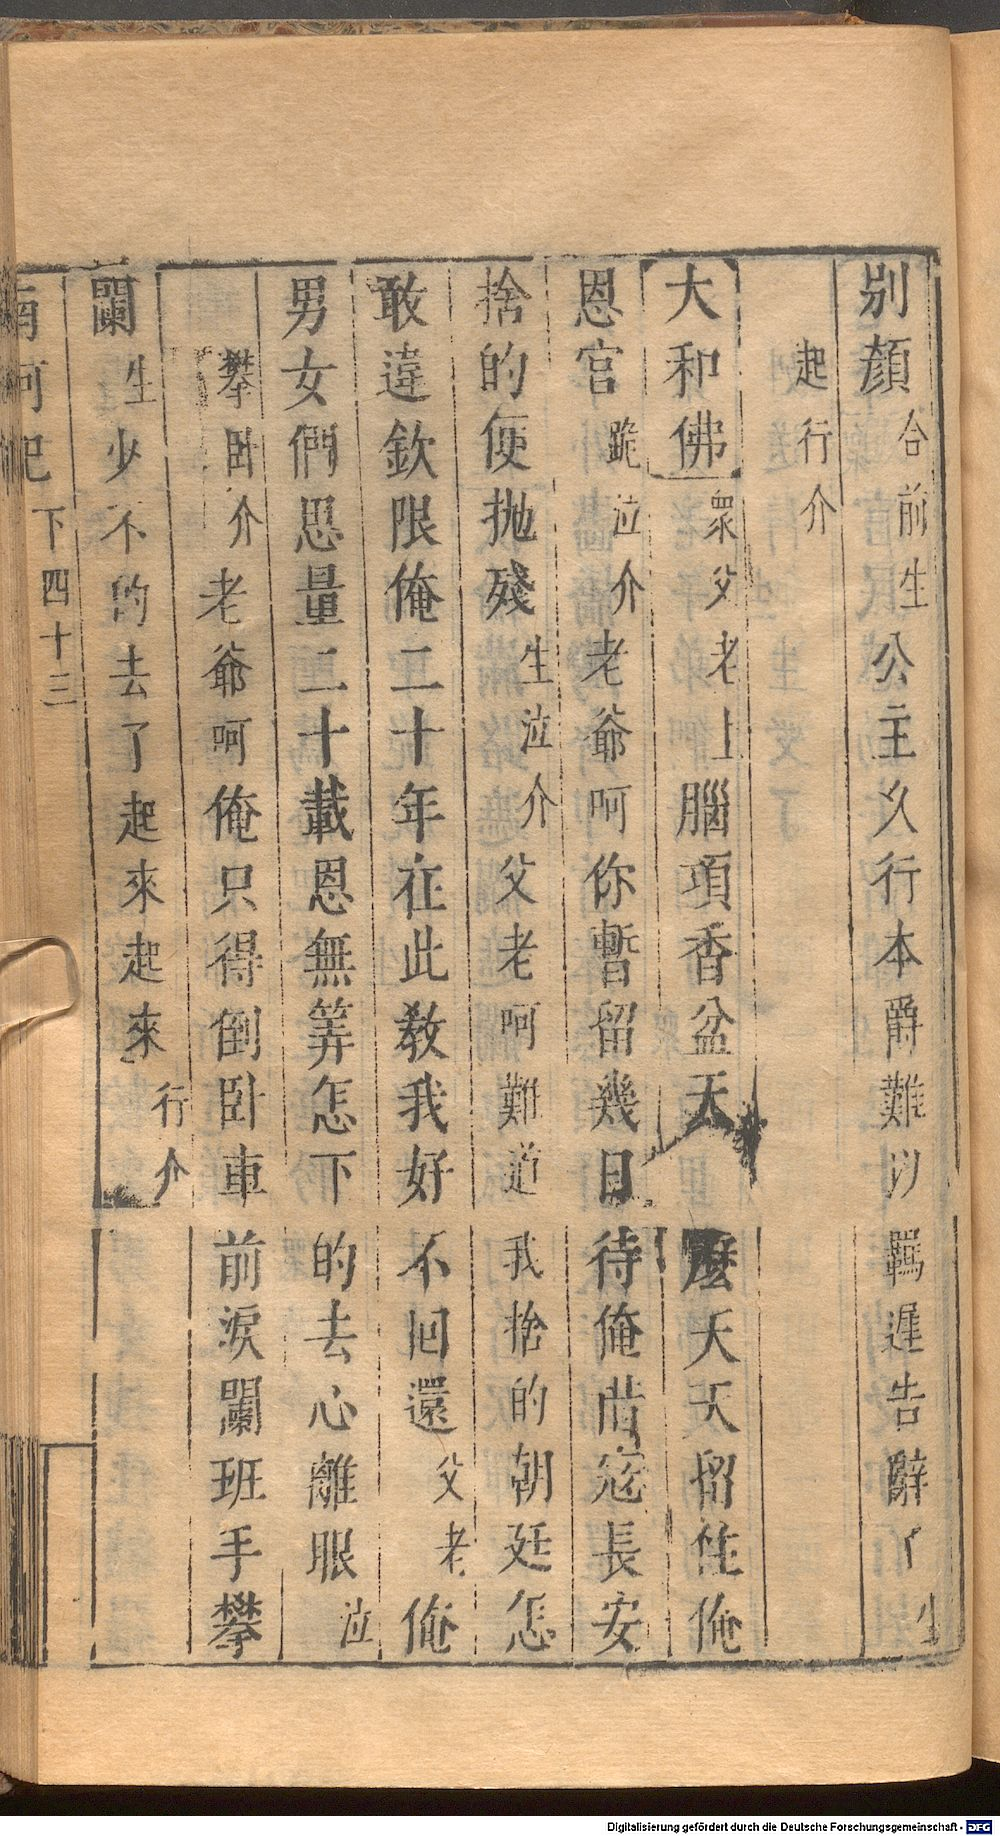 別顏合前生公主久行本爵難以羈遲告辭了生
起行介
【大和佛】衆父老上腦項香盆天麼天天留住俺
恩官跪泣介老爺呵你暫留幾日待俺借寇長安
捨的便抛殘生泣介父老呵難道我捨的朝廷怎
敢違欽限俺二十年在此教我好不回還父老俺
男女們思量二十載恩無筭怎下的去心離眼泣
攀臥介老爺呵俺只得倒臥車前淚闌班手攀
闌生少不的去了起來起來行介
南柯記 下 四十三
Digitalisierung gefördert durch die Deutsche Forschungsgemeinschaft - DFG